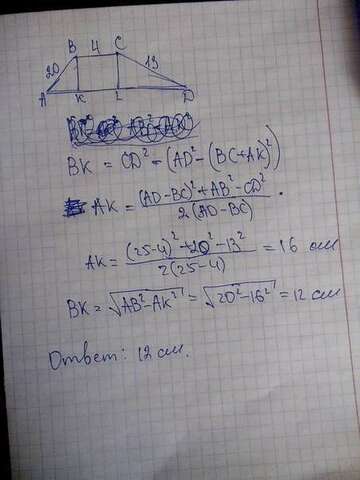 B 4 C
20 13
A K L D
BK = CD² - (AD² - (BC + AK)²)
AK = (AD - BC)² + AB² - CD² / 2(AD - BC)
AK = (25 - 4)² + 20² - 13² / 2(25 - 4) = 16 см
BK = √AB² - AK² = √20² - 16² = 12 см
Ответ: 12 см.